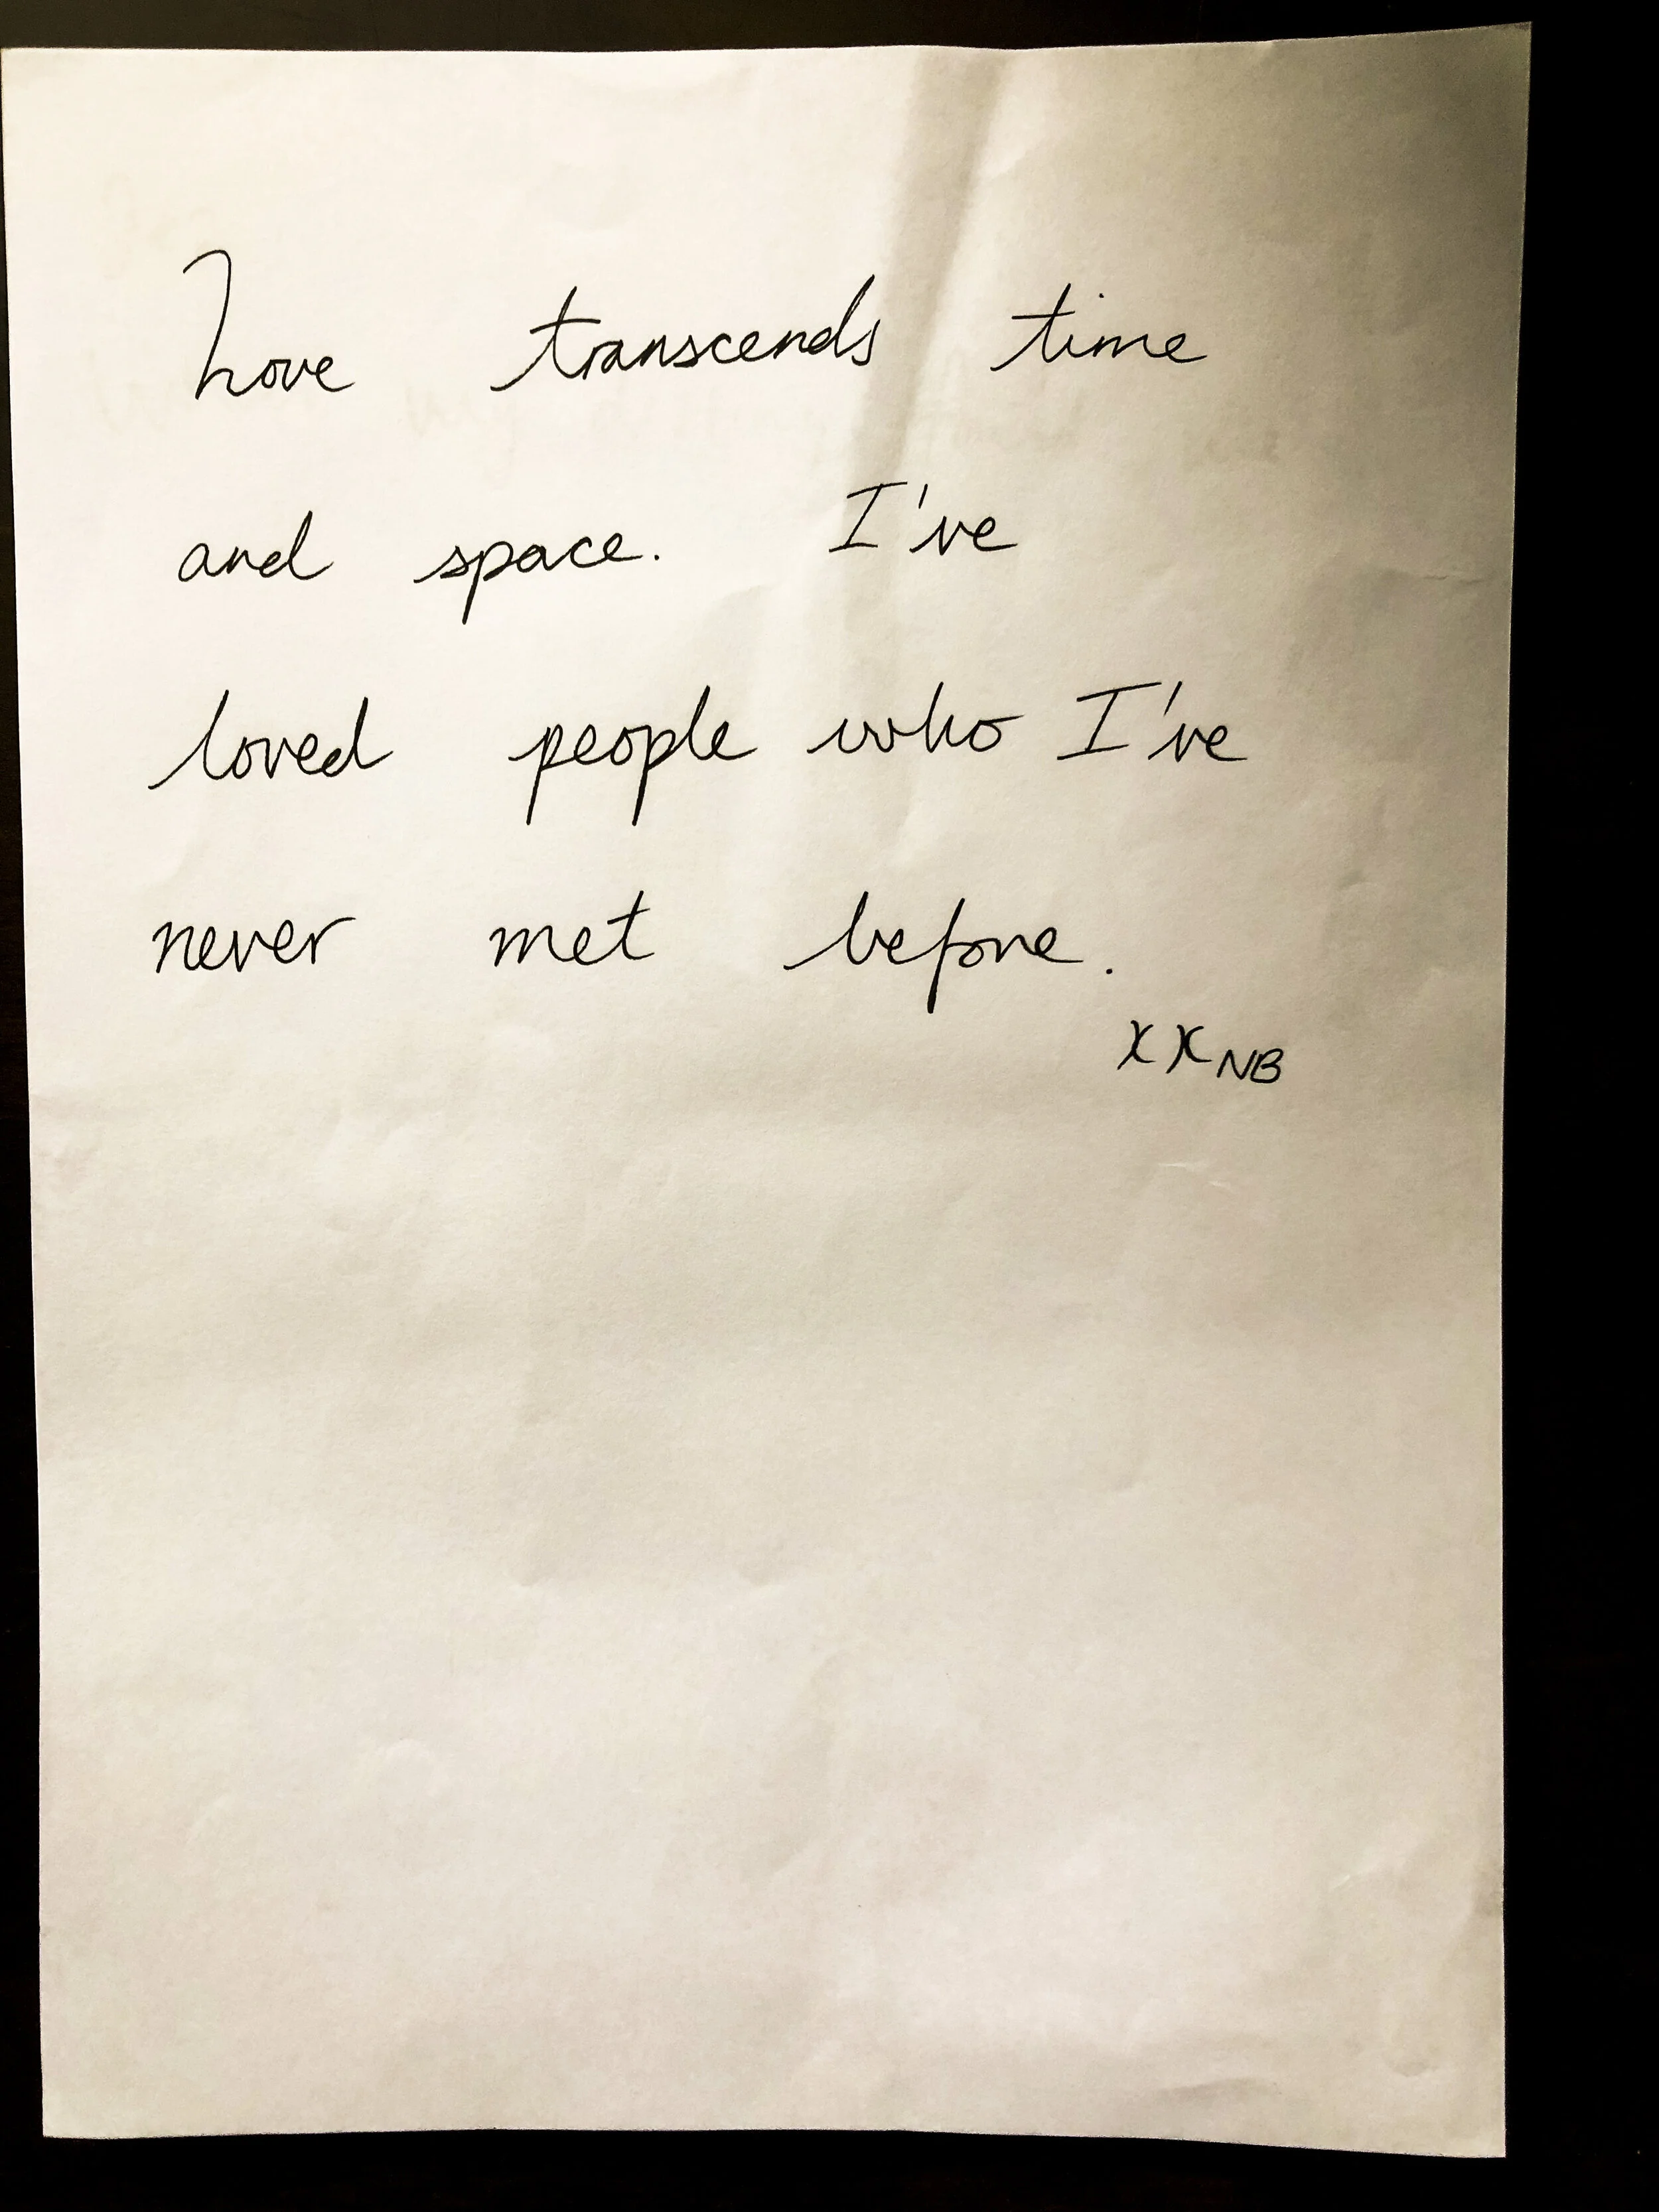 Love transcends time
and space. I've
loved people who I've
never met before.
xx NB